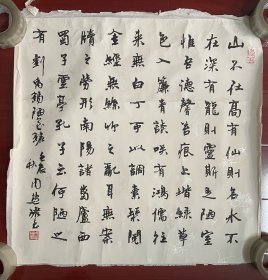 山不在高有仙則名水不
在深有龍則靈斯是陋室
惟吾德馨苔痕上階綠草
色入簾青談笑有鴻儒往
來無白丁可以調素琴閱
金經無絲竹之亂耳無案
牘之勞形南陽諸葛廬西
蜀子雲亭孔子云何陋之
有劉禹錫陋室銘
秋周